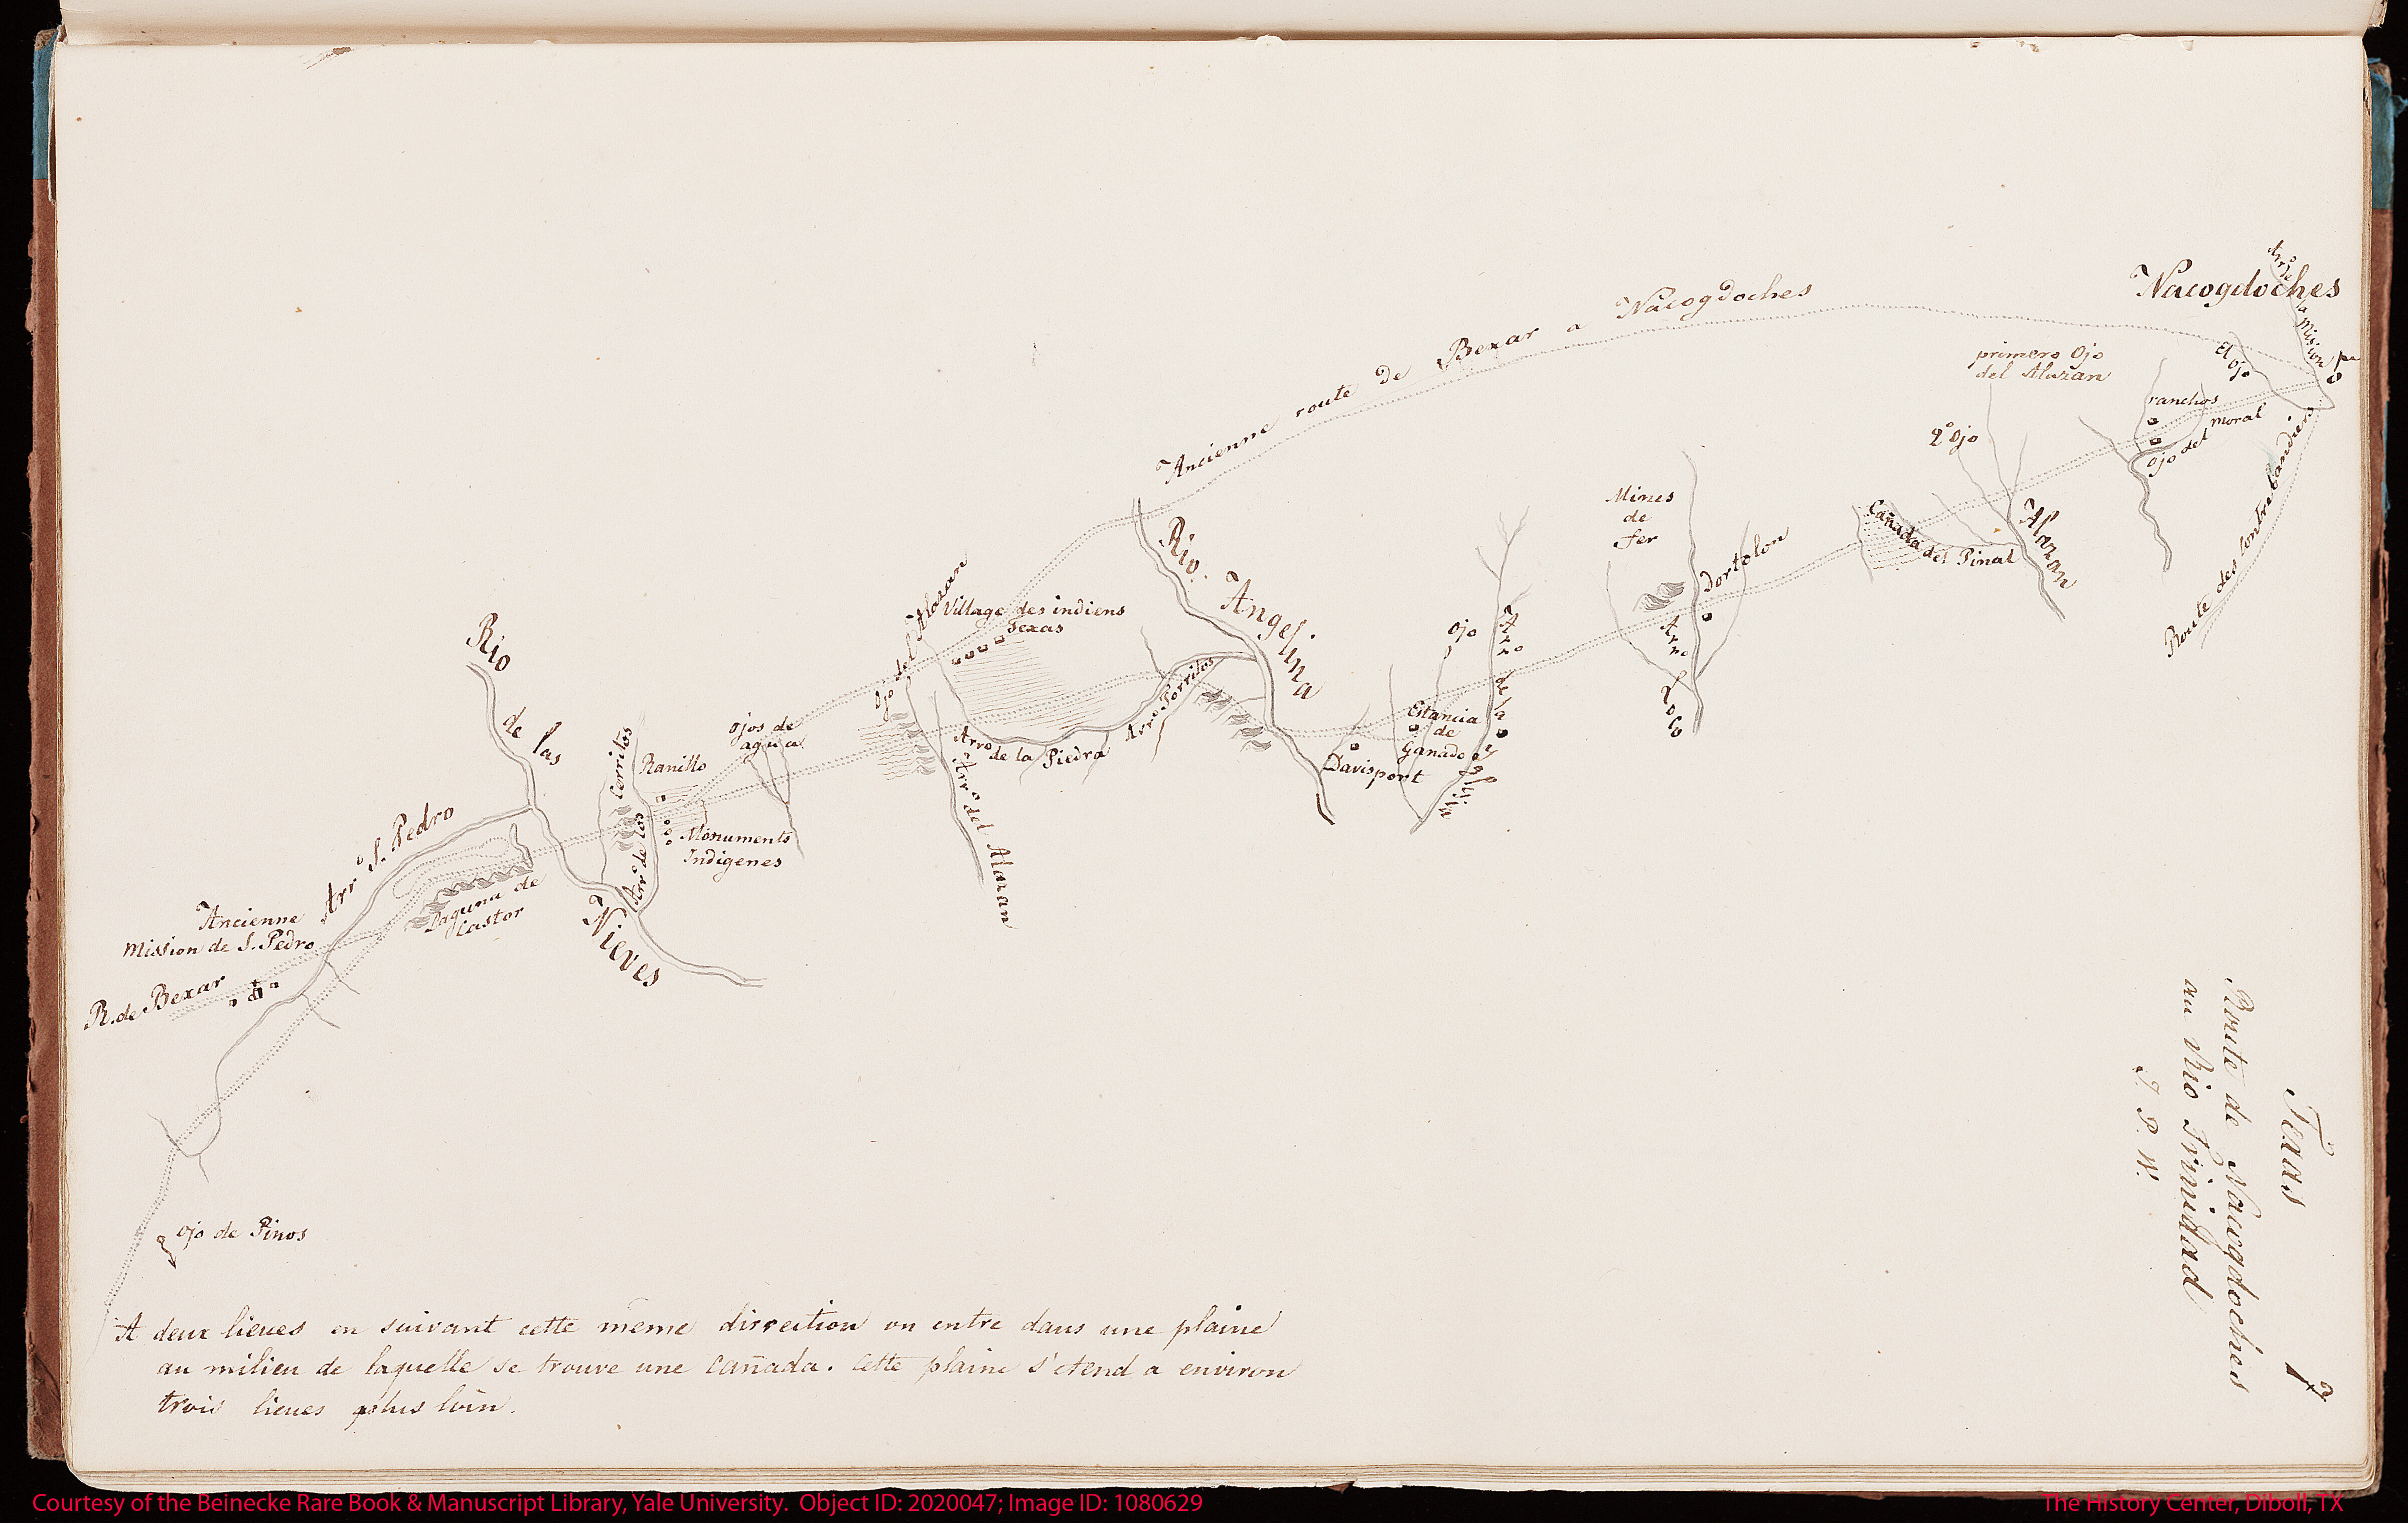 Nacogdoches
Arr.º de la Mision
El Ojo
primero Ojo
del Alazan
2º Ojo
ranchos
Ojo del moral
Route des Contrebandiers
Alazan
Cañada del Pinal
Ancienne route de Bexar a Nacogdoches
Mines
de
fer
Dortolon
Arro Loco
Ojo
Arro de la Yglesia
Estancia
de
Ganado
Davisport
Rio. Angelina
Village des indiens
Texas
Ojo del Alazan
Arro Porritos
Arro de la Piedra
Arro del Alazan
Ojos de
agua
Ranillo
Arro de los Cerritos
Monuments
Indigenes
Rio de las Nieves
Arr.º S. Pedro
Laguna de
Castor
Ancienne
Mission de S. Pedro
R. de Bexar
Ojo de Pinos
A deux lieues en suivant cette même dirrection on entre dans une plaine
au milieu de laquelle se trouve une Cañada. Cette plaine s'etend a environ
trois lieues plus loin.
Texas
Route de Nacogdoches
au Rio Trinidad
Courtesy of the Beinecke Rare Book & Manuscript Library, Yale University. Object ID: 2020047; Image ID: 1080629
The History Center, Diboll, TX